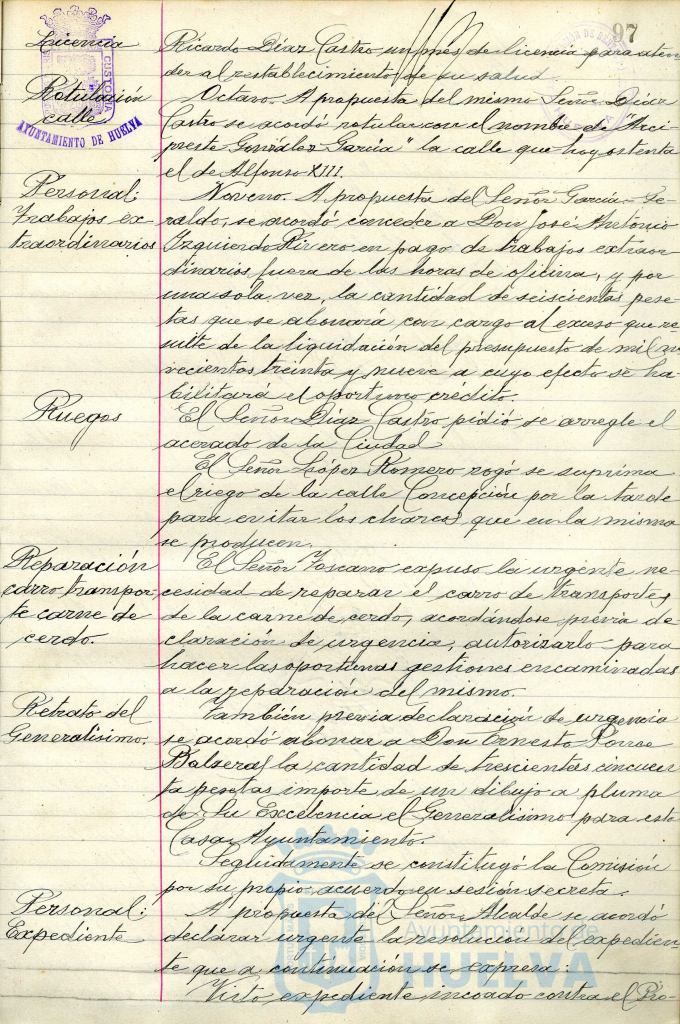 97
Licencia
Ricardo Díaz Castro un mes de licencia para aten-
der al restablecimiento de su salud.
Rotulación
calle
AYUNTAMIENTO DE HUELVA
CUSTODIA
Octavo. A propuesta del mismo Señor Díaz
Castro se acordó rotular con el nombre de "Arci-
preste González García" la calle que hoy ostenta
el de Alfonso XIII.
Personal:
Trabajos ex-
traordinarios
Noveno. A propuesta del Señor García-Ge-
raldo, se acordó conceder a Don José Antonio
Izquierdo Rivero en pago de trabajos extraor-
dinarios, fuera de las horas de oficina, y por
una sola vez, la cantidad de seiscientas pese-
tas que se abonará con cargo al exceso que re-
sulte de la liquidación del presupuesto de mil no-
vecientos treinta y nueve a cuyo efecto se ha-
bilitará el oportuno crédito.
Ruegos
El Señor Díaz Castro pidió se arregle el
acerado de la Ciudad
El Señor López Romero rogó se suprima
el riego de la calle Concepción por la tarde
para evitar los charcos que en la misma
se producen.
Reparación
carro transpor-
te carne de
cerdo.
El Señor Toscano expuso la urgente ne-
cesidad de reparar el carro de transportes
de la carne de cerdo, acordándose, previa de-
claración de urgencia, autorizarlo para
hacer las oportunas gestiones encaminadas
a la reparación del mismo.
Retrato del
Generalísimo.
También previa declaración de urgencia
se acordó abonar a Don Ernesto Ponce
la cantidad de trescientas cincuen-
ta pesetas importe de un dibujo a pluma
de Su Excelencia el Generalísimo para esta
Casa Ayuntamiento.
Seguidamente se constituyó la Comisión
por su propio acuerdo en sesión secreta.
Personal:
Expediente
A propuesta del Señor Alcalde se acordó
declarar urgente la resolución del expedien-
te que a continuación se expresa:
Visto, expediente incoado contra el Pro-
Ayuntamiento de
HUELVA